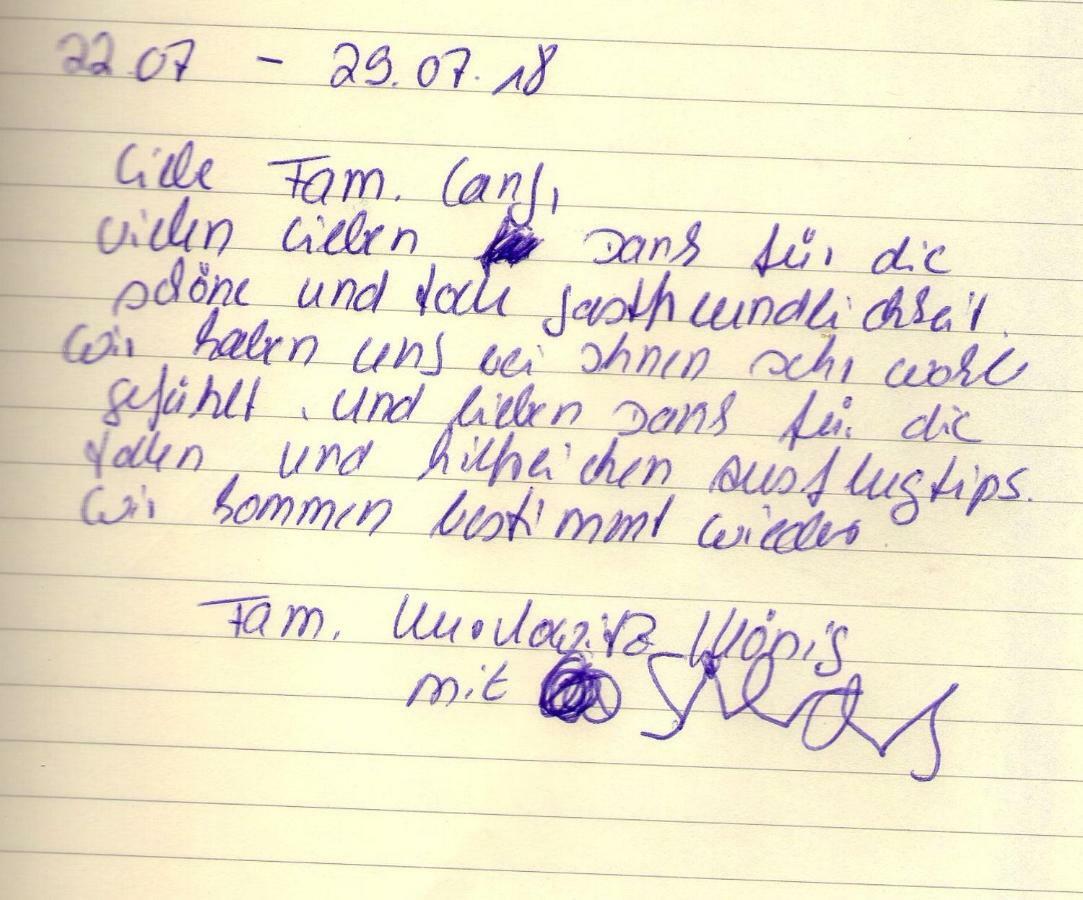 22.07 - 29.07.18
Liebe Fam. Lang,
vielen lieben Dank für die
schöne und tolle Gastfreundlichkeit.
Wir haben uns bei Ihnen sehr wohl
gefühlt. Und lieben Dank für die
tollen und hilfreichen Ausflugtips.
Wir kommen bestimmt wieder
Fam.
mit